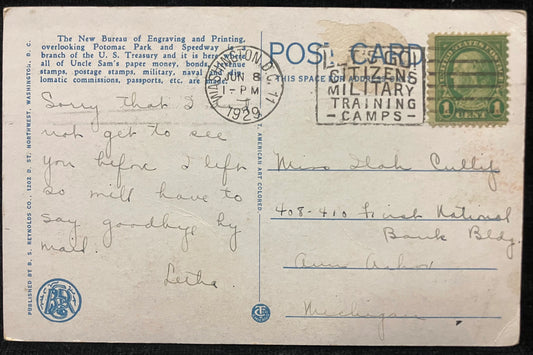 The New Bureau of Engraving and Printing,
overlooking Potomac Park and Speedway
branch of the U. S. Treasury and it is here
all of Uncle Sam's paper money, bonds,
stamps, postage stamps, military, naval
lomatic commissions, passports, etc. are made.
POST CARD
THIS SPACE FOR ADDRESS
WASHINGTON, D.C. 11
JUN 8
1-PM
1929
CITIZENS
MILITARY
TRAINING
-CAMPS-
UNITED STATES POSTAGE
1 CENT 1
Sorry that I
not get to see
you before I left
so will have to
say goodbye by
mail.
Letha.
Miss Ilah Cullip
408-410 First National
Bank Bldg.
Ann Arbor
Michigan
PUBLISHED BY B. S. REYNOLDS CO., 1202 D. ST. NORTHWEST, WASHINGTON, D. C.
T. AMERICAN ART COLORED